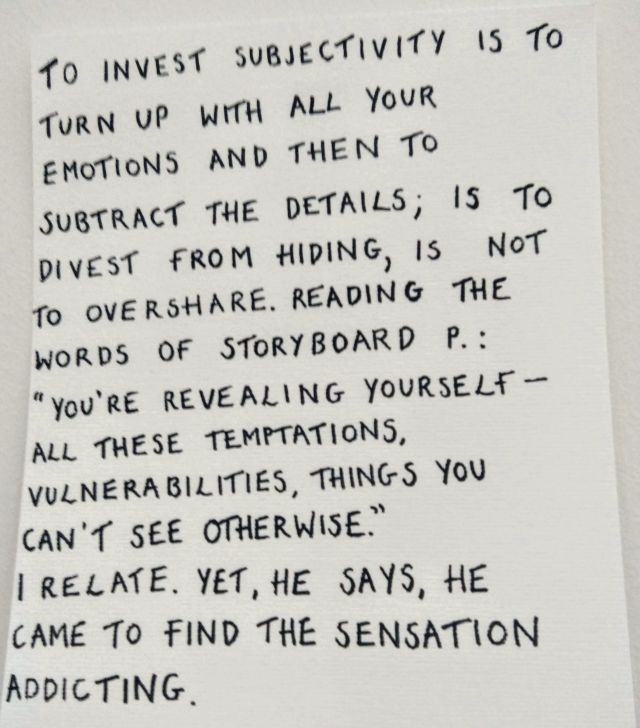 TO INVEST SUBJECTIVITY IS TO
TURN UP WITH ALL YOUR
EMOTIONS AND THEN TO
SUBTRACT THE DETAILS; IS TO
DIVEST FROM HIDING, IS NOT
TO OVERSHARE. READING THE
WORDS OF STORYBOARD P.:
"YOU'RE REVEALING YOURSELF—
ALL THESE TEMPTATIONS,
VULNERABILITIES, THINGS YOU
CAN'T SEE OTHERWISE."
I RELATE. YET, HE SAYS, HE
CAME TO FIND THE SENSATION
ADDICTING.